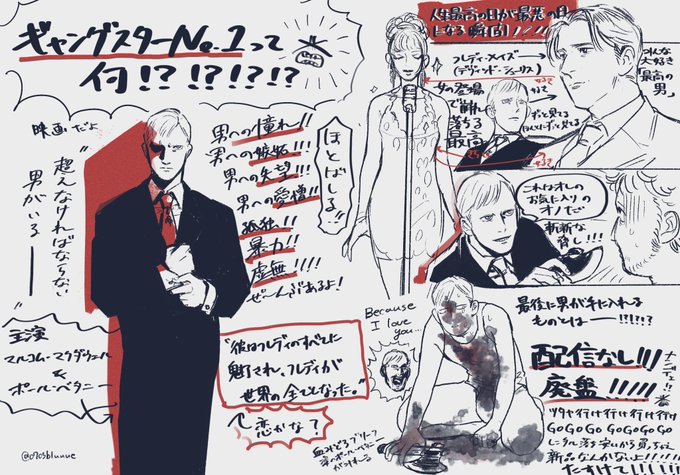 ギャングスターNo.1って
何!?!?!?!?
映画だよ
"超えなければならない
男がいる——"
主演
マルコム・マクダウェル
&
ポール・ベタニー
男への憧れ!!
男への嫉妬!!
男への失望!!!
男への愛憎!!
孤独!!
暴力!!
虚無!!!!
ぜーんぶあるよ!
ほとばしる!!
"彼はフレディのすべてに
魅了され、フレディが
世界の全てとなった。"
恋かな?
人生最高の日が最悪の日
になる瞬間!!!!
フレディ・メイズ
(デヴィッド・シューリス)
こんな
大好き
「最高の
男」
女の登場
で崩れ
落ちる
最高
ずっと見てる
これはオレの
お気に入りの
オノだ
斬新な
脅し!!!
Because
I love
you...
最後に男が手に入れる
ものとは——!?!?!?
配信なし!!!
廃盤!!!!!
ツタヤ行け行け行け行け
GoGoGo GoGoGoGo
新品なんかないよ!!!!
@o7o5blunue